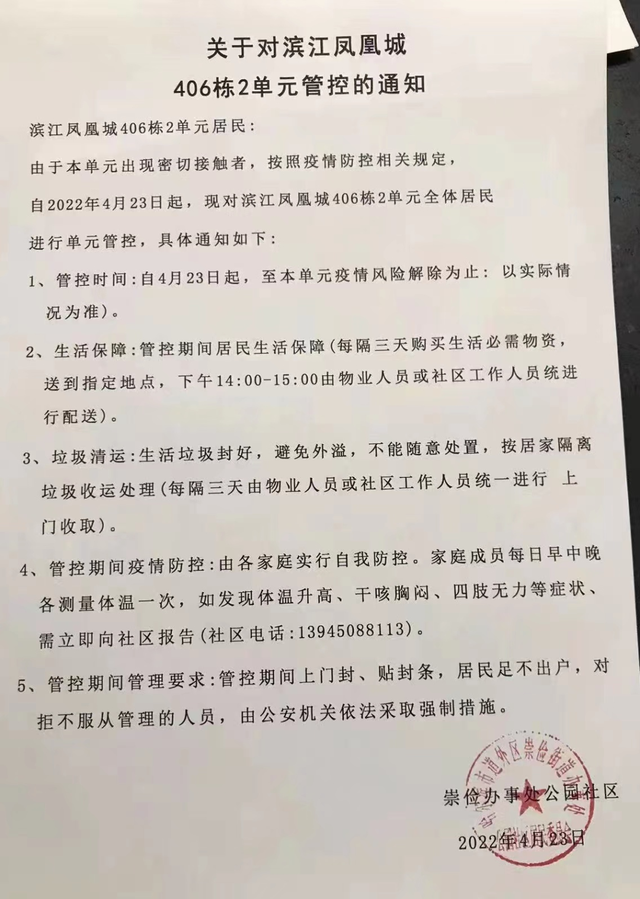 关于对滨江凤凰城
406栋2单元管控的通知
滨江凤凰城406栋2单元居民:
由于本单元出现密切接触者，按照疫情防控相关规定，
自2022年4月23日起，现对滨江凤凰城406栋2单元全体居民
进行单元管控，具体通知如下:
1、管控时间:自4月23日起，至本单元疫情风险解除为止: 以实际情
况为准)。
2、生活保障:管控期间居民生活保障(每隔三天购买生活必需物资，
送到指定地点，下午14:00-15:00由物业人员或社区工作人员统进
行配送)。
3、垃圾清运:生活垃圾封好，避免外溢，不能随意处置，按居家隔离
垃圾收运处理(每隔三天由物业人员或社区工作人员统一进行 上
门收取)。
4、管控期间疫情防控:由各家庭实行自我防控。家庭成员每日早中晚
各测量体温一次，如发现体温升高、干咳胸闷、四肢无力等症状、
需立即向社区报告(社区电话:13945088113)。
5、管控期间管理要求:管控期间上门封、贴封条，居民足不出户，对
拒不服从管理的人员，由公安机关依法采取强制措施。
市道外区崇俭街道办事处
崇俭办事处公园社区
2022年4月23日